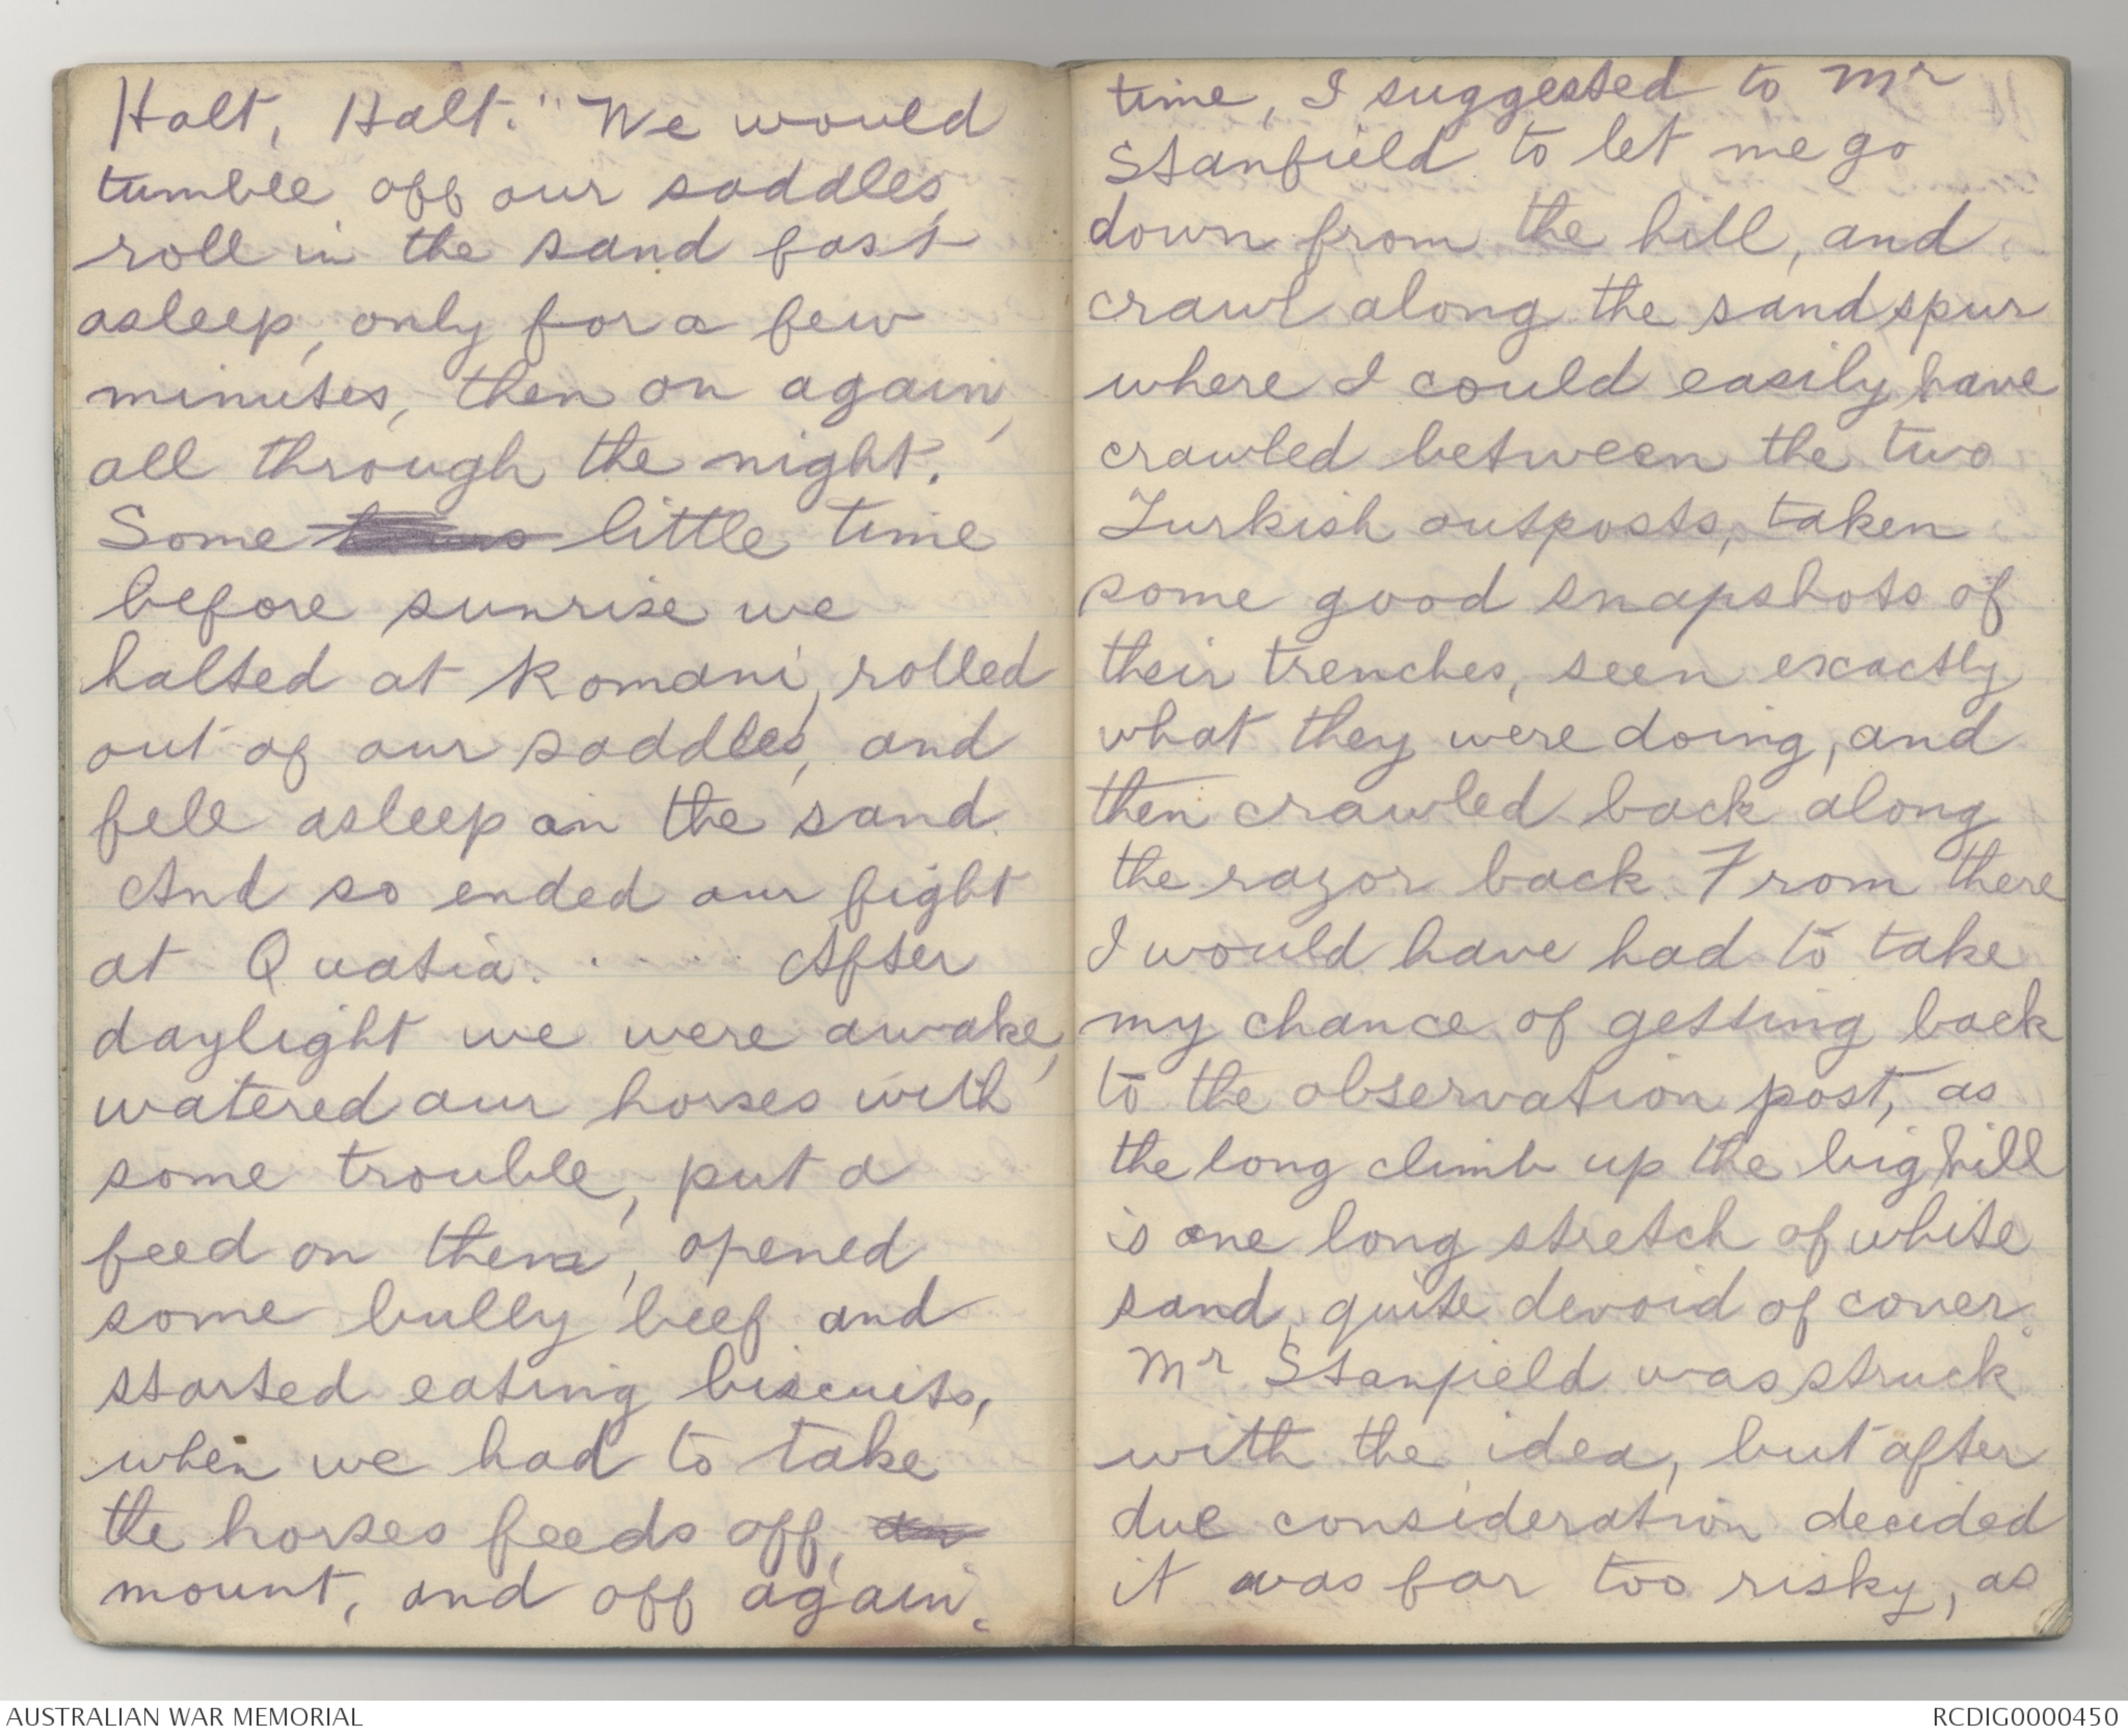 Halt, Halt." We would
tumble off our saddles,
roll in the sand fast
asleep, only for a few
minutes, then on again,
all through the night.
Some little time
before sunrise we
halted at Romani, rolled
out of our saddles, and
fell asleep on the sand.
And so ended our fight
at Quatia. ..... After
daylight we were awake,
watered our horses with
some trouble, put a
feed on them, opened
some bully beef and
started eating biscuits,
when we had to take
the horses feeds off, an
mount, and off again.
time, I suggested to Mr
Stanfield to let me go
down from the hill, and
crawl along the sand spur
where I could easily have
crawled between the two
Turkish outposts, taken
some good snapshots of
their trenches, seen exactly
what they were doing, and
then crawled back along
the razor back. From there
I would have had to take
my chance of getting back
to the observation post, as
the long climb up the big hill
is one long stretch of white
sand, quite devoid of cover.
Mr Stanfield was struck
with the idea, but after
due consideration decided
it was far too risky, as
AUSTRALIAN WAR MEMORIAL
RCDIG0000450